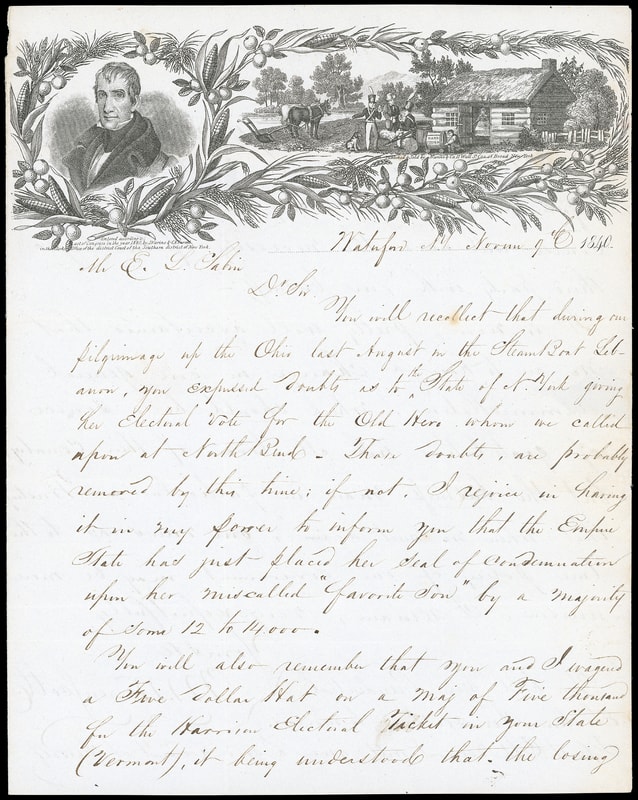 Entered according to
act of Congress in the year 1840, by
in the Office of the district Court of the Southern district of New York.
Wall St. cor. of Broad New York
Waterford N.Y. Novem 9th 1840.
Mr E. D. Sabin
Dr Sir
You will recollect that during our
pilgrimage up the Ohio last August in the SteamBoat Leb-
anon, you expressed doubts as to the State of N. York giving
her Electoral Vote for the Old Hero whom we called
upon at North Bend - Those doubts, are probably
removed by this time; if not, I rejoice in having
it in my power to inform you that the Empire
State has just placed her seal of condemnation
upon her miscalled "favorite Son" by a majority
of some 12 to 14,000.
You will also remember that you and I wagered
a Five dollar Hat on a Maj of Five thousand
for the Harrison Electoral Ticket in your State
(Vermont), it being understood that the losing